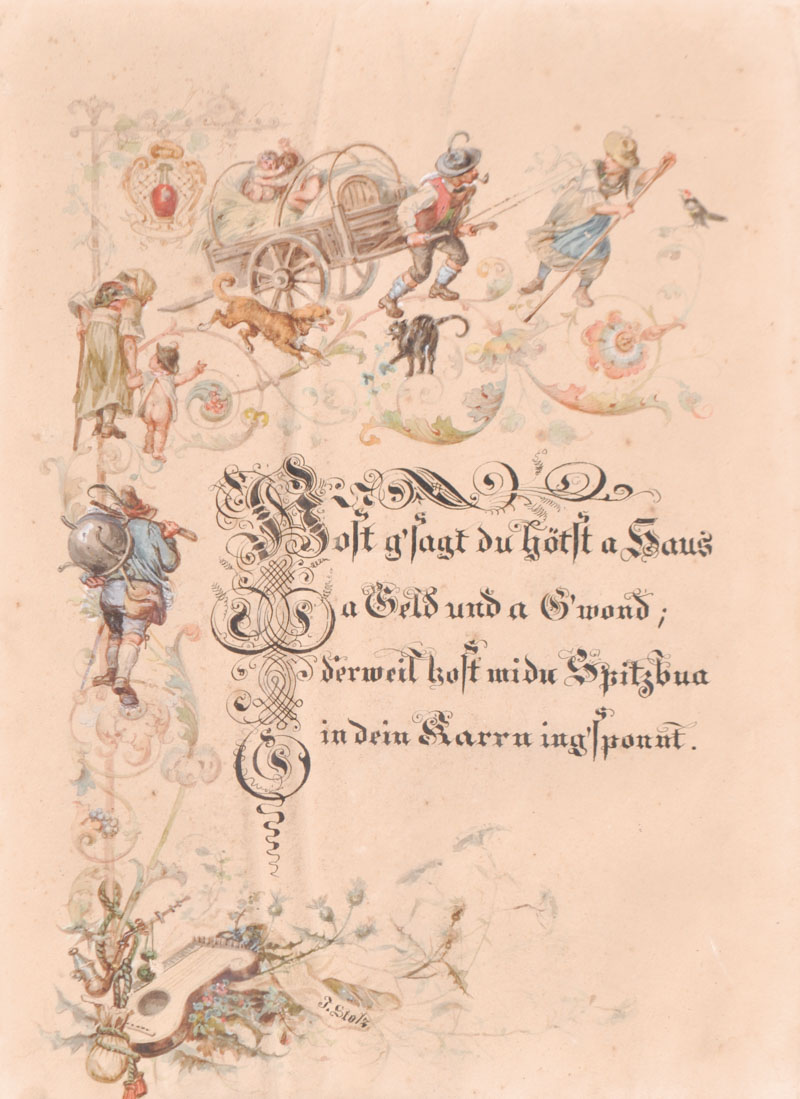 Host g'sagt du hötst a Haus
a Geld und a G'wond;
derweil host mi du Spitzbua
in dein Karrn ing'sponnt.
J. Stolz